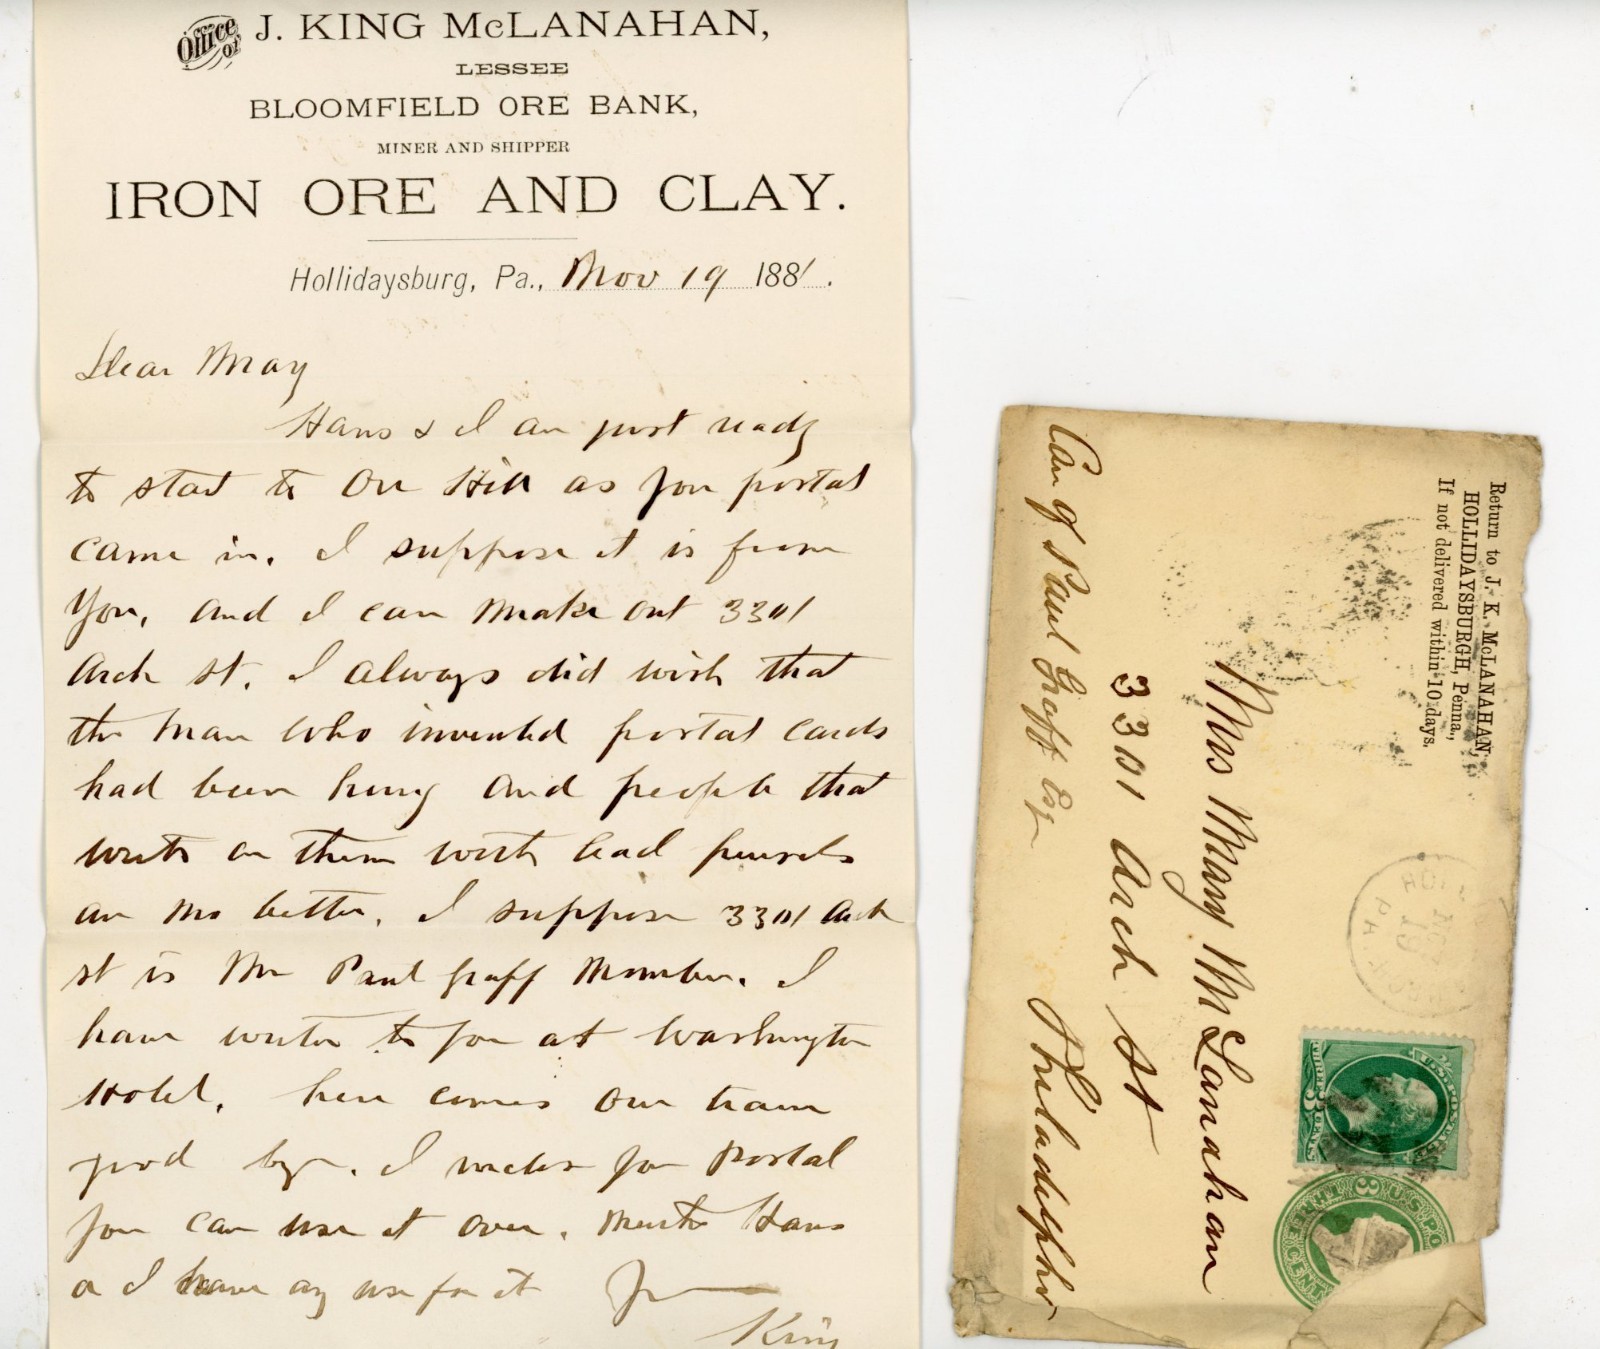 Office of J. KING McLANAHAN,
LESSEE
BLOOMFIELD ORE BANK,
MINER AND SHIPPER
IRON ORE AND CLAY.
Hollidaysburg, Pa., Nov 19 1881.
Dear May
Hans & I are just ready
to start to Ore Hill as your postal
came in. I suppose it is from
You, and I can make out 3301
Arch st. I always did wish that
the man who invented postal cards
had been hung and people that
write on them with lead pencils
are no better. I suppose 3301 Arch
st is Mr Paul Graff Number. I
have written to you at Washington
Hotel, here comes our train
good bye. I inclose your Postal
you can use it over. Neither Hans
or I have any use for it
King
Return to J. K. McLANAHAN,
HOLLIDAYSBURGH, Penna.,
If not delivered within 10 days.
Mrs Mary McLanahan
3301 Arch St
Philadelphia
Care of Paul Graff Esq
PA.
19
U.S. POSTAGE
THREE 3 CENTS
U.S. PO
3
THREE CENTS